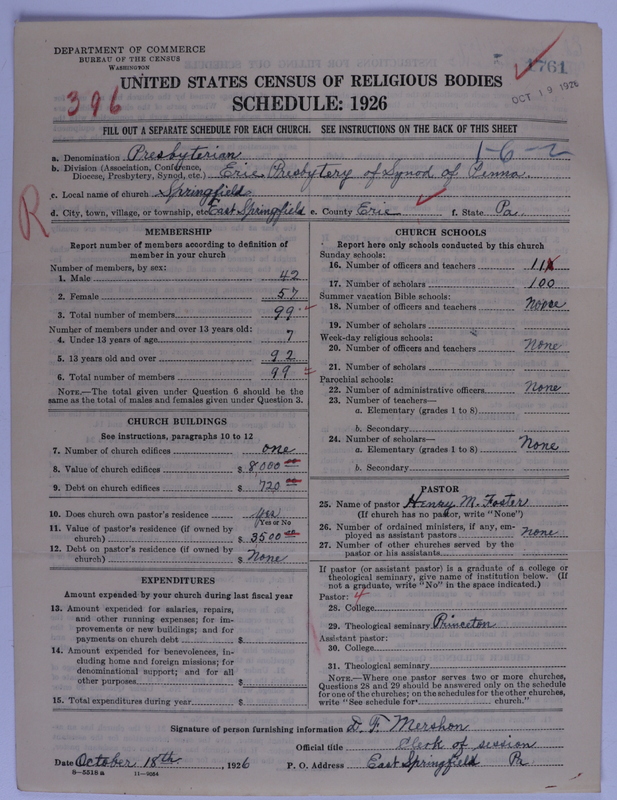 DEPARTMENT OF COMMERCE
BUREAU OF THE CENSUS
WASHINGTON
1761
OCT 19 1926
UNITED STATES CENSUS OF RELIGIOUS BODIES
396
SCHEDULE: 1926
FILL OUT A SEPARATE SCHEDULE FOR EACH CHURCH. SEE INSTRUCTIONS ON THE BACK OF THIS SHEET
1-6-2
a. Denomination Presbyterian
b. Division (Association, Conference, Diocese, Presbytery, Synod, etc.) Erie Presbytery of Synod of Penna.
c. Local name of church Springfield
d. City, town, village, or township, etc. East Springfield e. County Erie f. State Pa.
R
MEMBERSHIP
Report number of members according to definition of member in your church
Number of members, by sex:
1. Male 42
2. Female 57
3. Total number of members 99
Number of members under and over 13 years old:
4. Under 13 years of age 7
5. 13 years old and over 92
6. Total number of members 99
NOTE.—The total given under Question 6 should be the same as the total of males and females given under Question 3.
CHURCH BUILDINGS
See instructions, paragraphs 10 to 12
7. Number of church edifices one
8. Value of church edifices $ 8,000 00
9. Debt on church edifices $ 720 00
10. Does church own pastor's residence? yes
Yes or No
11. Value of pastor's residence (if owned by church) $ 3500 00
12. Debt on pastor's residence (if owned by church) $ None
EXPENDITURES
Amount expended by your church during last fiscal year
13. Amount expended for salaries, repairs, and other running expenses; for improvements or new buildings; and for payments on church debt $
14. Amount expended for benevolences, including home and foreign missions; for denominational support; and for all other purposes $
15. Total expenditures during year $
CHURCH SCHOOLS
Report here only schools conducted by this church
Sunday schools:
16. Number of officers and teachers 11
17. Number of scholars 100
Summer vacation Bible schools:
18. Number of officers and teachers None
19. Number of scholars
Week-day religious schools:
20. Number of officers and teachers None
21. Number of scholars
Parochial schools:
22. Number of administrative officers None
23. Number of teachers—
a. Elementary (grades 1 to 8)
b. Secondary
24. Number of scholars—
a. Elementary (grades 1 to 8) None
b. Secondary
PASTOR
25. Name of pastor Henry M. Foster
(If church has no pastor, write "None")
26. Number of ordained ministers, if any, employed as assistant pastors none
27. Number of other churches served by the pastor or his assistants
If pastor (or assistant pastor) is a graduate of a college or theological seminary, give name of institution below. (If not a graduate, write "No" in the space indicated.)
Pastor: 4
28. College
29. Theological seminary Princeton
Assistant pastor:
30. College
31. Theological seminary
NOTE.—Where one pastor serves two or more churches, Questions 28 and 29 should be answered only on the schedule for one of the churches; on the schedules for the other churches, write "See schedule for church."
Signature of person furnishing information D. F. Mershon
Official title Clerk of session
Date October 18th, 1926 P. O. Address East Springfield Pa
8—5518 a 11—9054